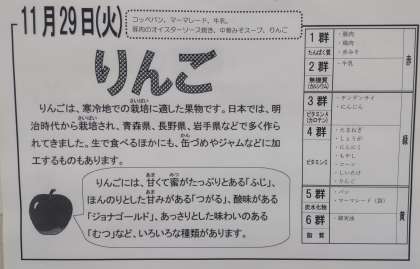 11月29日(火)
コッペパン、マーマレード、牛乳、
豚肉のオイスターソース焼き、中華みそスープ、りんご
りんご
りんごは、寒冷地での栽培に適した果物です。日本では、明
治時代から栽培され、青森県、長野県、岩手県などで多く作ら
れてきました。生で食べるほかにも、缶づめやジャムなどに加
工するものもあります。
りんごには、甘くて蜜がたっぷりとある「ふじ」、
ほんのりとした甘みがある「つがる」、酸味がある
「ジョナゴールド」、あっさりとした味わいのある
「むつ」など、いろいろな種類があります。
1群
たんぱく質
・豚肉
・鶏肉
・赤みそ
2群
無機質
(カルシウム)
・牛乳
赤
3群
ビタミンA
(カロテン)
・チンゲンサイ
・にんじん
4群
ビタミンC
・たまねぎ
・しょうが
・にんにく
・もやし
・コーン
・しいたけ
・りんご
5群
炭水化物
・パン
・マーマレード
6群
脂質
黄